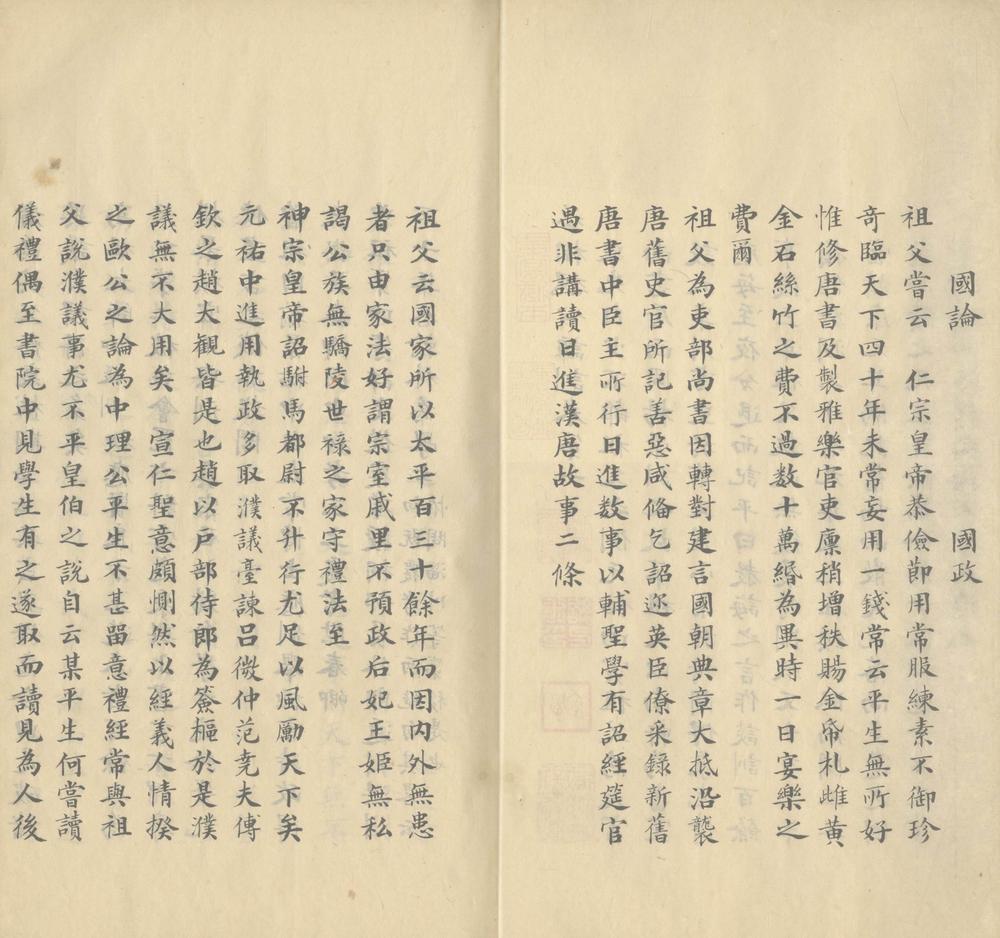 國論　國政
祖父嘗云仁宗皇帝恭儉節用常服練素不御珍
奇臨天下四十年未常妄用一錢常云平生無所好
惟修唐書及製雅樂官吏廩稍增秩賜金帛札雌黃
金石絲竹之費不過数十萬緡為異時一日宴樂之
費爾
祖父為吏部尚書因轉對建言國朝典章大抵沿襲
唐舊史官所記善惡咸俻乞詔迩英臣僚采錄新舊
唐書中臣主所行日進数事以輔聖學有詔經筵官
遇非講讀日進漢唐故事二條
祖父云國家所以太平百三十餘年而因内外無患
者只由家法好謂宗室戚里不預政后妃王姬無私
謁公族無驕陵世祿之家守禮法至
神宗皇帝詔駙馬都尉不升行尤足以風勵天下矣
元祐中進用執政多取濮議臺諫呂微仲范堯夫傅
欽之趙大觀皆是也趙以戶部侍郎為簽樞於是濮
議無不大用矣宣仁聖意頗惻然以經義人情揆
之歐公之論為中理公平生不甚畱意禮經常與祖
父說濮議事尤不平皇伯之說自云某平生何嘗讀
儀禮偶至書院中見學生有之遂取而讀見為人後